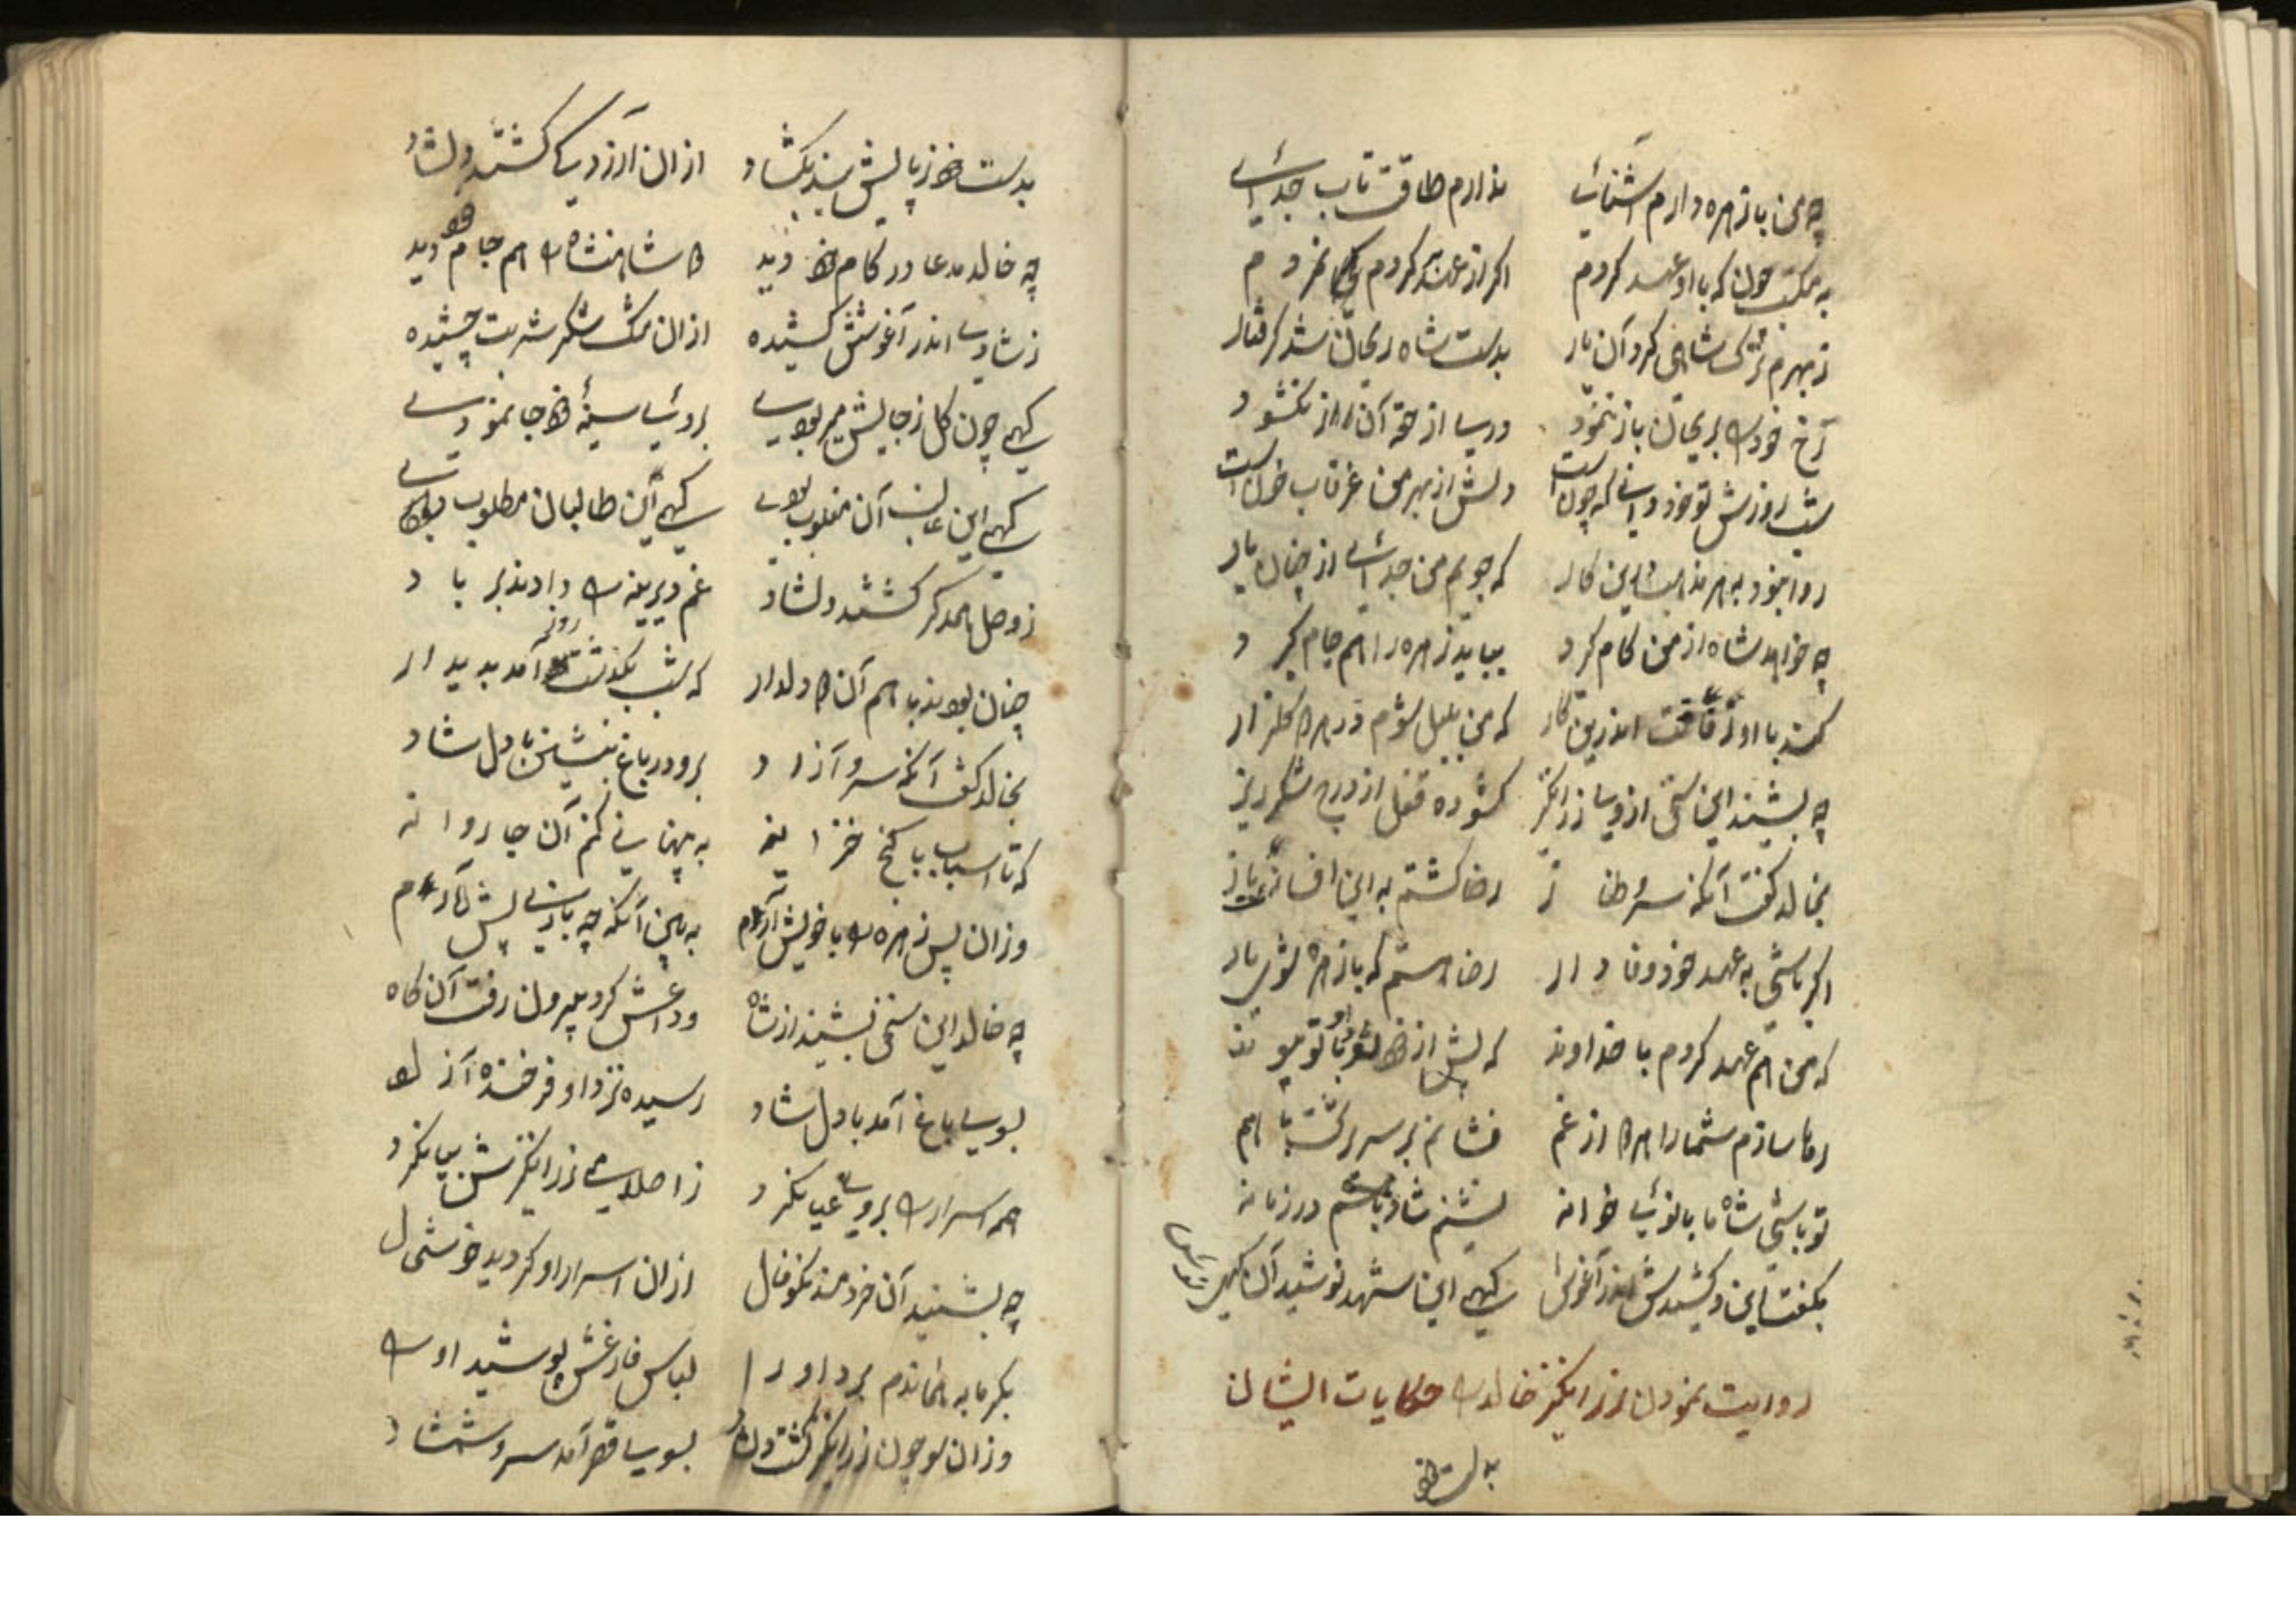 چه من با زهره دارم آشنایی ندارم طاقت تاب جدایی
به مکتب چون که با او عهد کردم اگر از عهد کردم نمردم
ز بهرم ترک شاهی کرد آن یار بدست شاه ریحان شد گرفتار
رخ خود را بریحان باز ننمود دری از حقه آن راز نگشود
شب روزش تو خود دانی که چونست دلش از بهر من غرقاب خونست
روا نبود به هر مذهب این کار که جویم من جدایی از چنان یار
چه خواهد شاه از من کام گیرد بباید زهره را هم جام گیرد
کند با او رفاقت اندرین کار که من بلبل شوم در هر دو گلزار
چه بشنید این سخن از وی زرانگیز گشوده قفل از درج شکرریز
بخالد گفت آنکه سرو طناز رضا گشتم به این افسانه باز
اگر باشی به عهد خود وفادار رضا هستم که با زهره شوی یار
که من هم عهد کردم با خداوند که پیش از خود با تو پیوند
رها سازم شما را هر دو از غم فشانم بر سر تخت با هم
تو باشی شاه ما بانوی خوانه نشینم شاد باشم در زمانه
بگفت این و کشیدش اندر آغوش گهی این شهد نوشید آن گهی
روایت نمودن زرانگیز خالد را حکایات ایشان
بدست خود
بدست خود ز پایش بند بگشاد ازان آزردگی گشتند دلشاد
چه خالد مدعا در کام خود دید دو شاهنشاه را هم جام خود دید
ز شادی اندر آغوشش کشیده ازان مشک شکر شربت چشیده
گهی چون گل ز جایش میربودی بروی سینهٔ خود جا نمودی
گهی این غالب آن مغلوب بودی گهی این طالب آن مطلوب بودی
ز وصل همدگر گشتند دلشاد غم دیرینه را دادند بر باد
چنان بودند با هم آن دو دلدار که شب بگذشت روز آمد پدیدار
بخالد گفت آنکه سرو آزاد برو در باغ بنشین با دل شاد
که تا اسباب با گنج خزاینه به پنهانی کنم آن جا روانه
وزان پس زهره را با خویش آرم به بین آنکه چه بازی پیش آرم
چه خالد این سخن بشنید از شاه وداعش کرد بیرون رفت آن گاه
بسوی باغ آمد با دل شاد رسیده نزد او فرخنده آزاد
همه اسرار را بروی عیان کرد ز احوالات زرانگیزش بیان کرد
چه بشنید آن خردمند نکوفال ازان اسرار او گردید خوشحال
بگرمابه همان دم برد او را لباس فاخرش پوشید او را
وزان سو چون زرانگیز گشت دلشاد بسوی قصر آمد سرو شمشاد